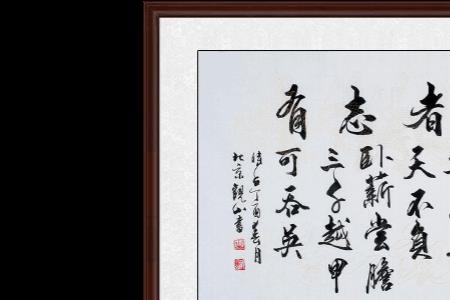 有志者
天不負
卧薪尝膽
三千越甲
可吞吴
時在丁酉春月
北京觀山書